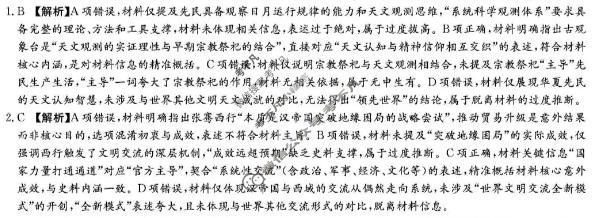 1.B 【解析】A项错误,材料仅提及先民具备观察日月运行规律的能力和天文观测思维,“系统科学观测体系”要求具
备完整的理论、方法和工具支撑,材料未体现相关信息,表述过于绝对,属于过度拔高。B项正确,材料明确指出古观
象台是“天文观测的实证理性与早期宗教祭祀的结合”,直接对应“天文认知与精神信仰相互交织”的表述,符合材料
核心内涵,是对材料信息的精准概括。C项错误,材料仅说明宗教祭祀与天文观测相结合,未提及宗教祭祀“主导”先
民生产生活,“主导”一词夸大了宗教祭祀的作用,材料无相关依据,属于无中生有。D项错误,材料仅展现华夏先民
的天文认知智慧,未涉及与世界其他文明天文成就的对比,无法得出“领先世界”的结论,属于脱离材料的过度推断。
2.C 【解析】A项错误,材料明确指出张骞西行“本质是汉帝国突破地缘困局的战略尝试”,推动贸易升级是意外结果
而非核心目的,选项混淆初衷与成效,表述不符合材料主旨。B项错误,材料未提及“突破地缘困局”的实际成效,仅
强调西行触发了文明交流的深层机制,“成效远超预期”缺乏史料支撑,属于过度推断。C项正确,材料关键信息“国
家力量打通通道”对应“官方主导”,契合“系统性交流”(含政治、军事、经济、文化等)的表述,精准概括材料核心意外
成效,与史料内涵一致。D项错误,材料仅体现汉帝国与西域的交流从偶然走向系统,未涉及“世界文明交流全新模
式”的开创,“全新模式”表述夸大,且未体现与世界其他交流形式的对比,脱离材料信息。